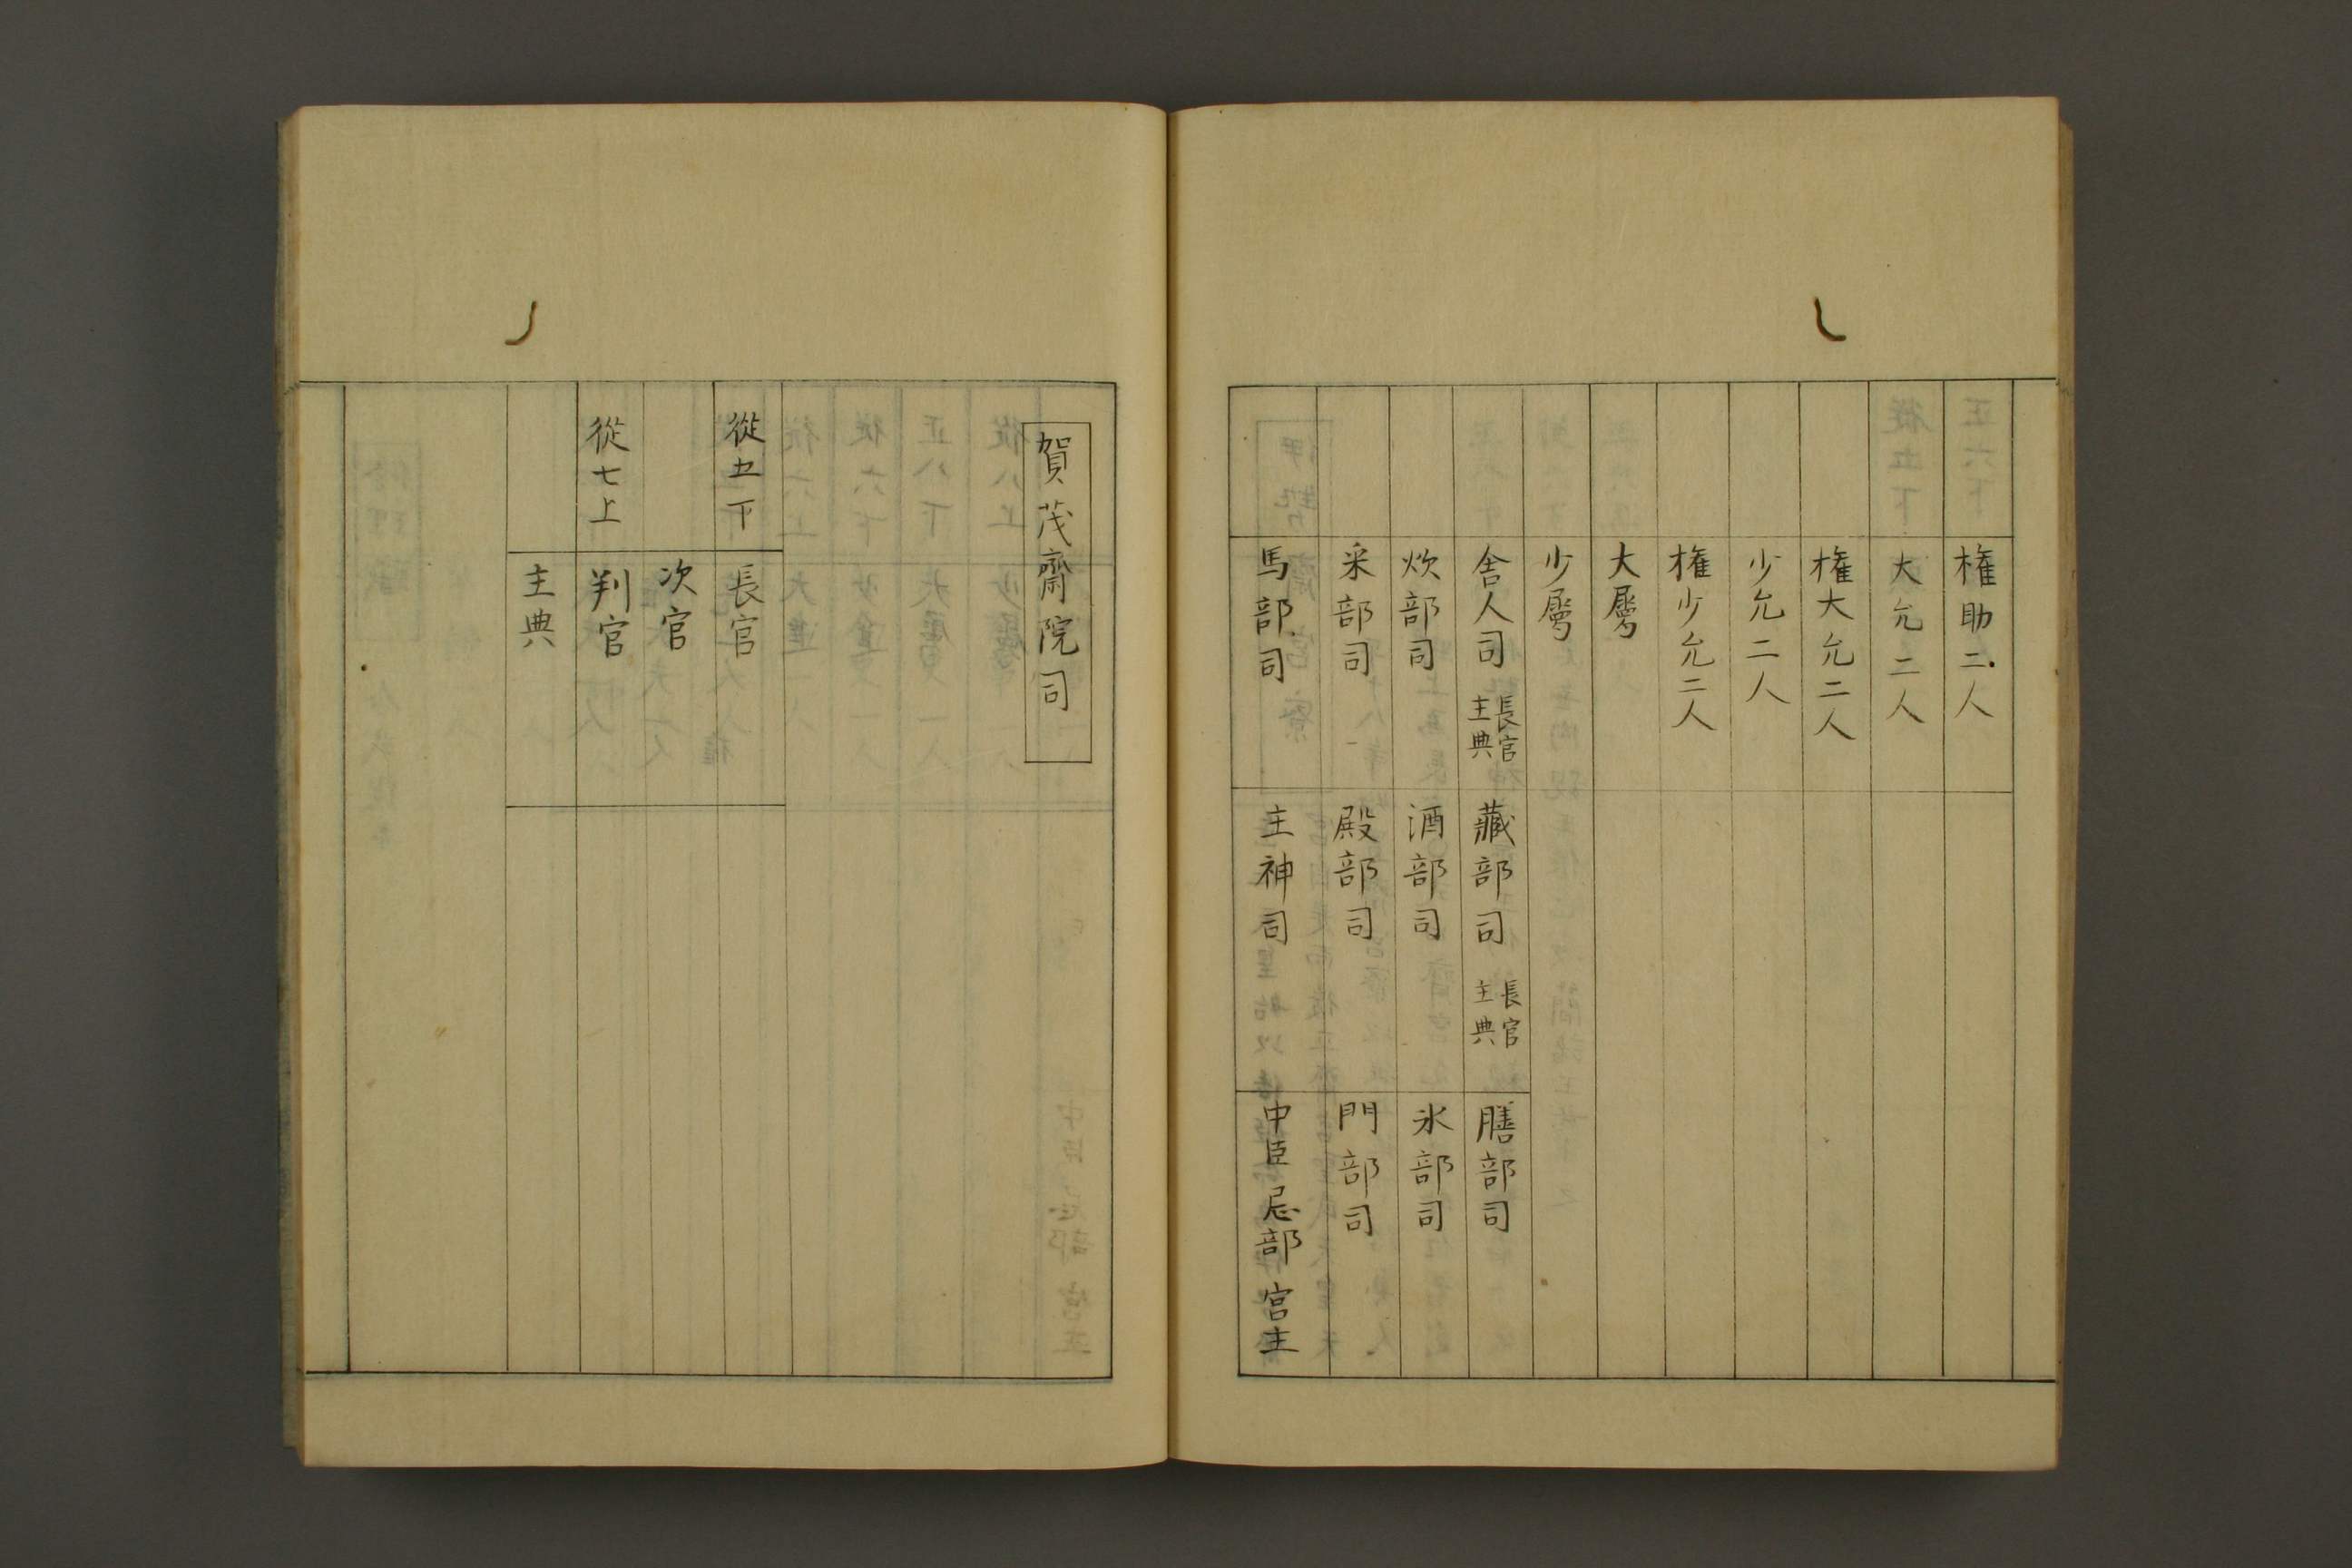 権助二人
大允二人
権大允二人
少允二人
権少允二人
大属
少属
舎人司 長官 主典 藏部司 長官 主典 膳部司
炊部司 酒部司 水部司
采部司 殿部司 門部司
馬部司 主神司 中臣 忌部 宮主
賀茂齋院司
從五下 長官
次官
從七上 判官
主典